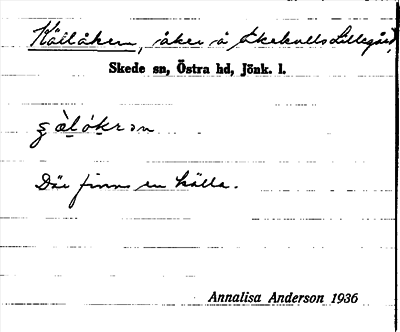 Källåkern, åker å Ekekulls Lillegård,
Skede sn, Östra hd, Jönk. l.
Där finns en källa.
Annalisa Anderson 1936